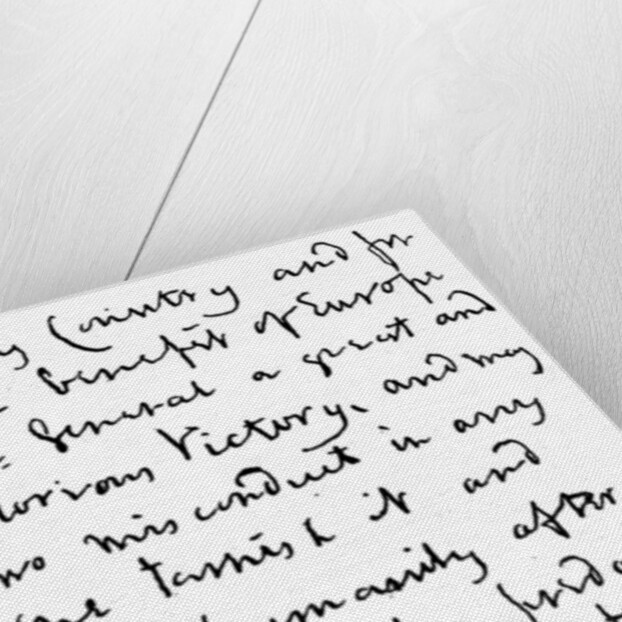 y Country and for
benefit of Europe
General a great and
lorious Victory, and may
no misconduct in any
one Tarnish it and
umanity after